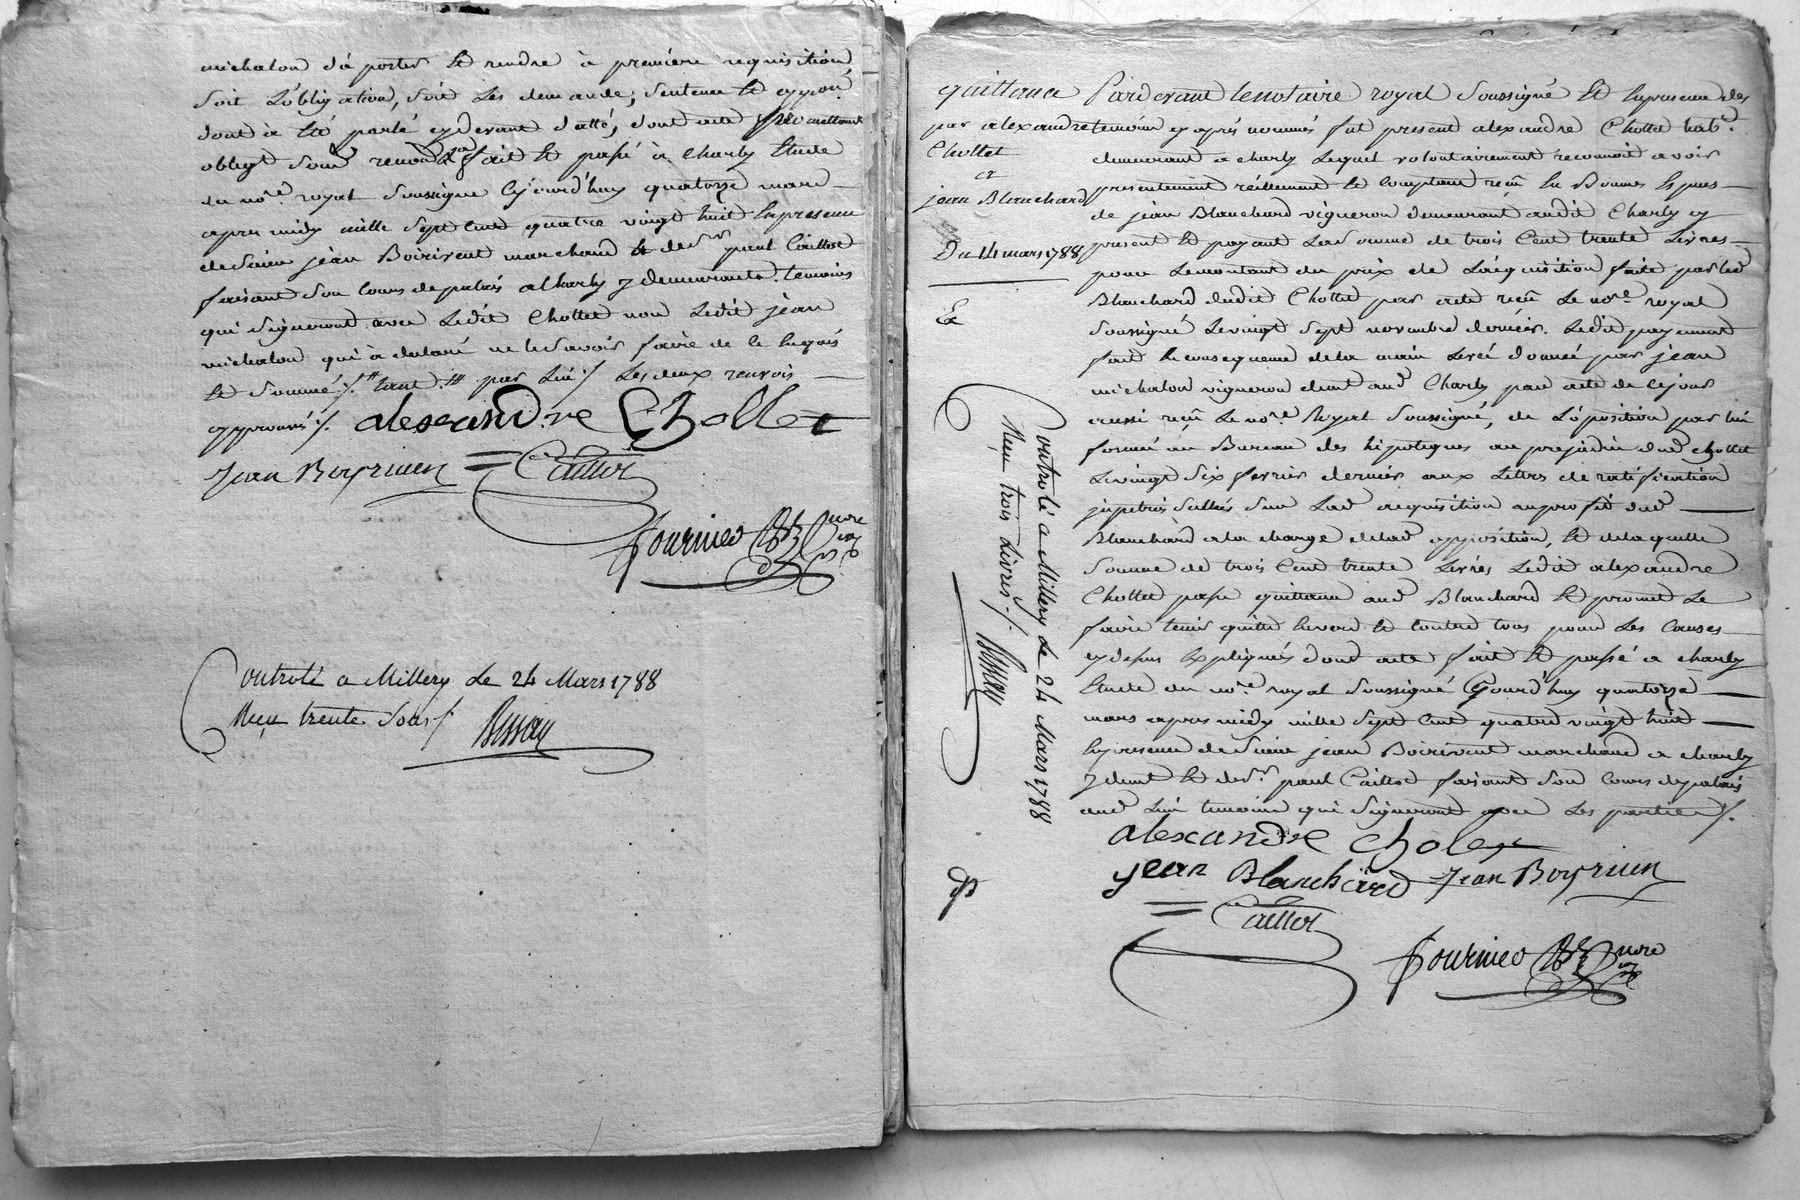 michalon d'a porter et rendre à première requisition
soit l'obligation, soit les demande, sentence et oppon
dont à été parlé cy devant d'atté, dont acte promettant
obligt soum renon fait et passé à Charly Etude
du nore royal soussigné cejourd'huy quatorze mars
apres midy mille sept cent quatre vingt huit en presence
de Sieur jean Boirivent marchand et de Sr paul Caillot
faisant son cours de palais a Charly y demeurants temoins
qui signeront avec ledit Chollet non ledit jean
michalon qui à declaré ne le savoir faire de ce enquis
et sommé ./. tant par lui ./. les deux renvois
approuvés ./. alexandre Chollet
Jean Boyriven Caillot
fournier nore
Controlé a Millery le 24 Mars 1788
Reçu trente sous ./. Bessay
quittance
par alexandre
Chollet
a
jean Blanchard
Du 14 mars 1788
Ex
Controlé a Millery le 24 Mars 1788
Reçu trois livres ./. Bessay
Pardevant le notaire royal soussigné et en presence des
temoins cy après nommés fut present alexandre Chollet habt
demeurant a charly lequel volontairement reconnoit avoir
presentement réellement et comptant reçû en bonnes especes
de jean Blanchard vigneron demeurant audit Charly cy
present et payant la somme de trois Cent trente Livres
pour le montant du prix de l'acquisition faite par led
Blanchard dudit Chollet par acte reçû le nore royal
soussigné le vingt sept novembre dernier. Ledit payement
fait en consequence de la main levée donnée par jean
michalon vigneron demt aud Charly par acte de ce jour
aussi reçû le nore Royal soussigné, de l'oposition par lui
formée au Bureau des hipoteques au prejudice dud Chollet
le vingt six fevrier dernier aux lettres de ratification
scellés sur lad acquisition au profit dud
Blanchard a la charge de lad opposition, et de laquelle
somme de trois Cent trente Livres ledit alexandre
Chollet passe quittance aud Blanchard et promet le
faire tenir quitte envers et contre tous pour les Causes
cy dessus expliquées dont acte fait et passé a charly
Etude du nore royal soussigné Cejourd'huy quatorze
mars apres midy mille sept cent quatre vingt huit
en presence de Sieur jean Boirivent marchand a charly
y demt et de Sr paul Caillot faisant son cours de palais
aud lieu temoins qui signeront avec les parties ./.
alexandre cholet
jean Blanchard Jean Boyriven
Caillot
fournier nore